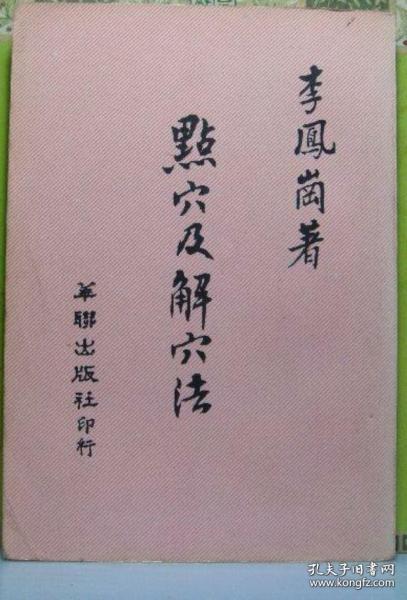 李鳳崗著
點穴及解穴法
華聯出版社印行
孔夫子旧书网
www.kongfz.com